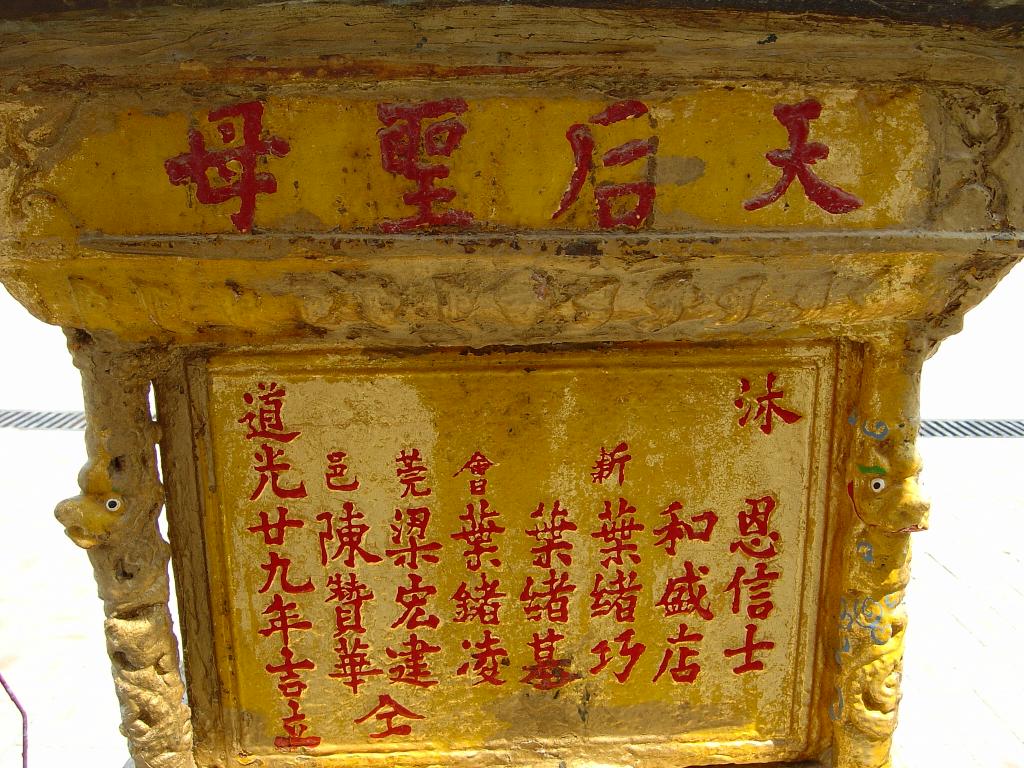 天后聖母
沐恩信士
和盛店
新葉緒巧
葉緒基
會葉緒凌
莞梁宏建
邑陳贊華
仝
道光廿九年吉立